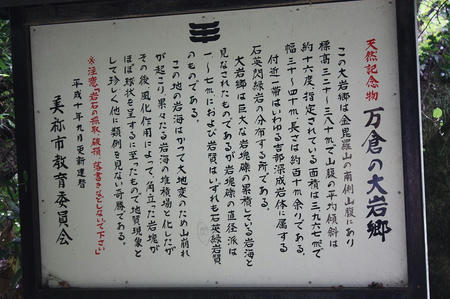 天然記念物 万倉の大岩郷
この大岩郷は金毘羅山の南側山腹にあり
標高三二十~三八十mで山腹の平均傾斜は
約十六度、指定されている面積は三九六七m²で
幅三十~四十m、長さは約百十m余りである。
付近一帯はいわゆる宇部深成岩体に属する
石英閃緑岩の分布する所である。
大岩郷は巨大な岩塊礫の累積している岩海と
見なされたものであるが岩塊礫の直径は
一~七mにおよび岩質はいずれも石英緑岩質
のものである。
この地の岩海はかつて大地変のため山崩れ
が起こり、累々たる岩海の堆積場と化したが
その後風化作用によって、角立った岩塊が
ほぼ球状を呈するに至ったもので地質現象と
して珍しく他に類例を見ない奇勝である。
※注意「岩石の無断破損、落書きなどしないで下さい」
平成十年九月更新建替
美祢市教育委員会